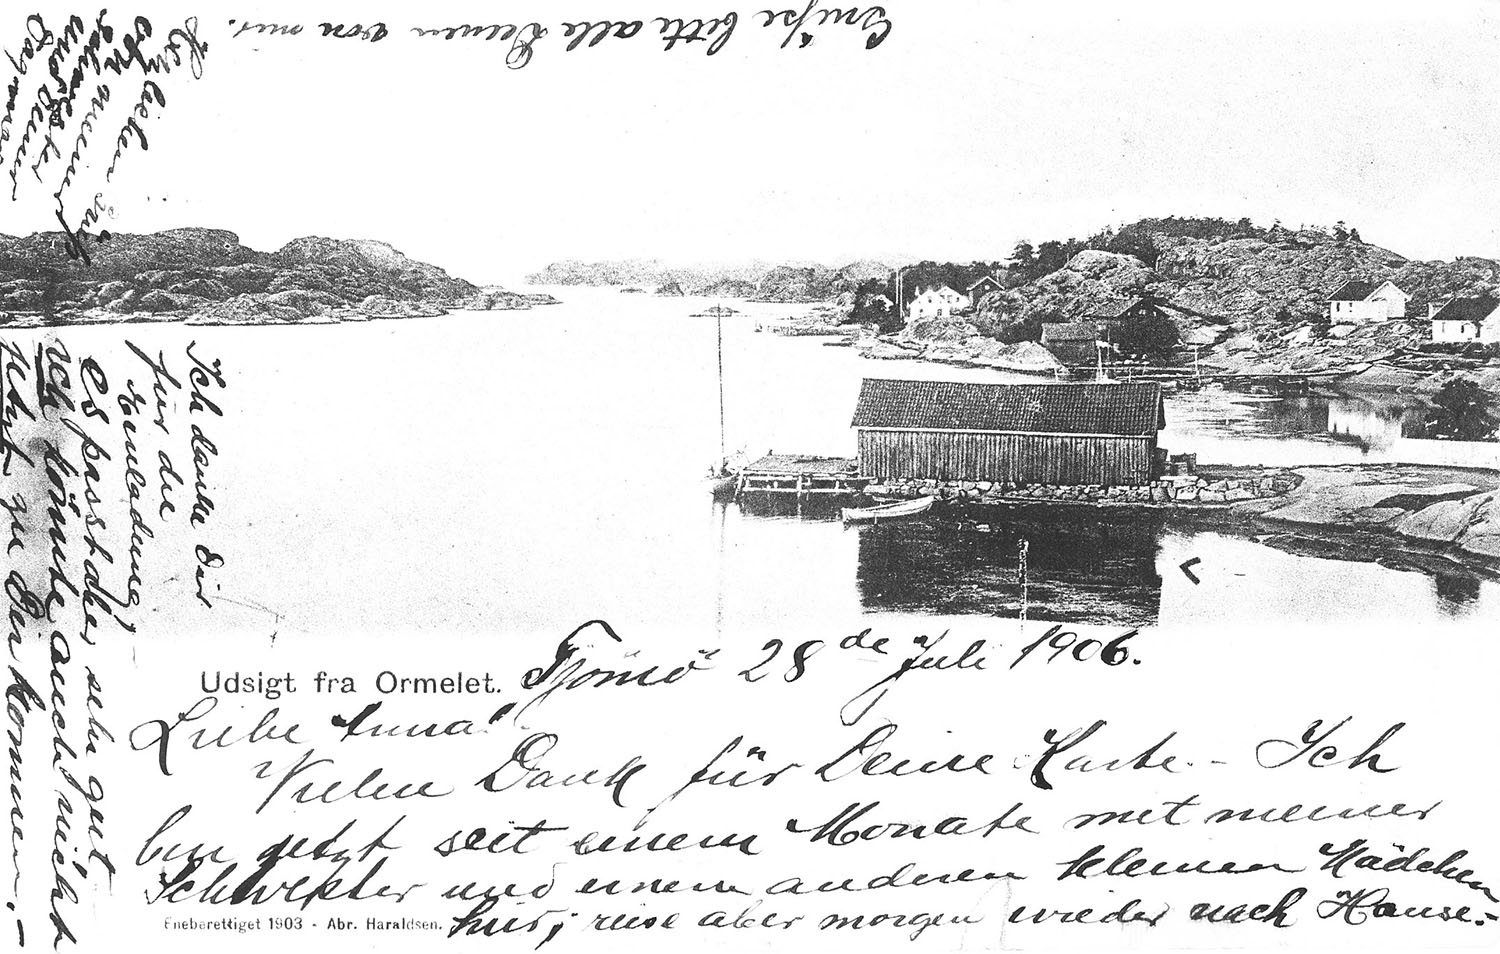 Udsigt fra Ormelet.
Tjömö 28de Juli 1906.
Liebe Anna!
Vielen Dank für Deine Karte. - Ich
bin jetzt seit einem Monate mit meiner
Schwester und einem anderen kleinen Mädchen
hier; reise aber morgen wieder nach Hause.-
Eneberettiget 1903 - Abr. Haraldsen.
Ich danke Dir
für die
Einladung!
es passt aber sehr gut
Ich könnte auch nicht
jetzt zu Dir kommen. -
Herzlichen
meiner
Dagmar
Grüße bitte alle Deinen von mir.